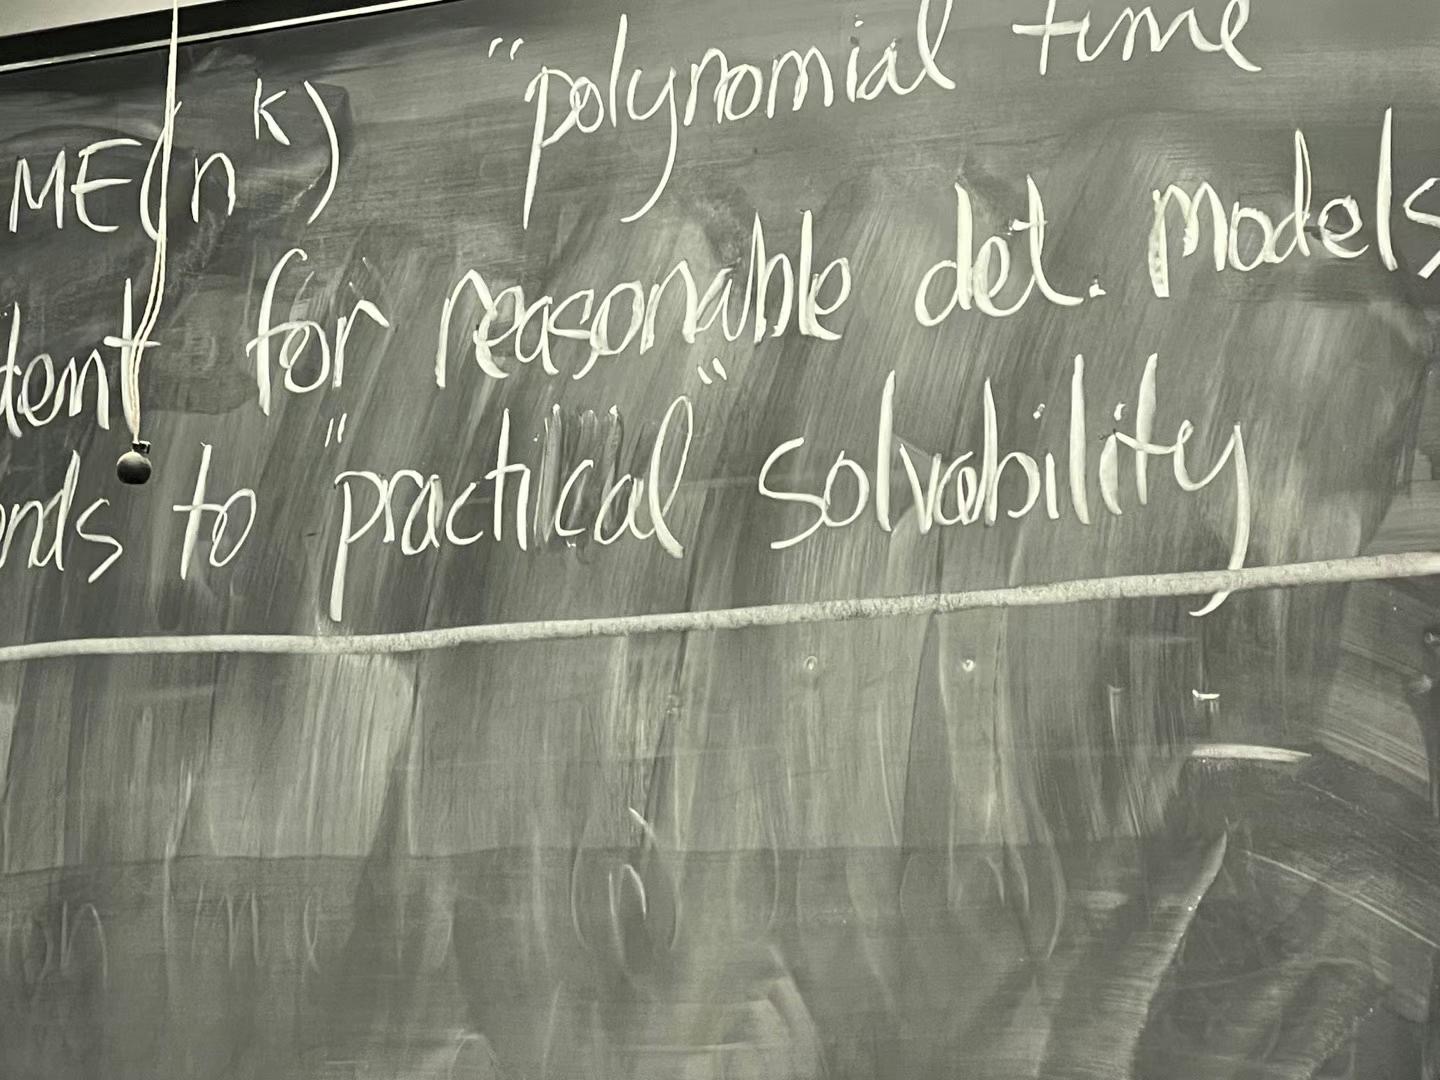 ME(n^k) "polynomial time
for reasonable det. models
to "practical" solvability